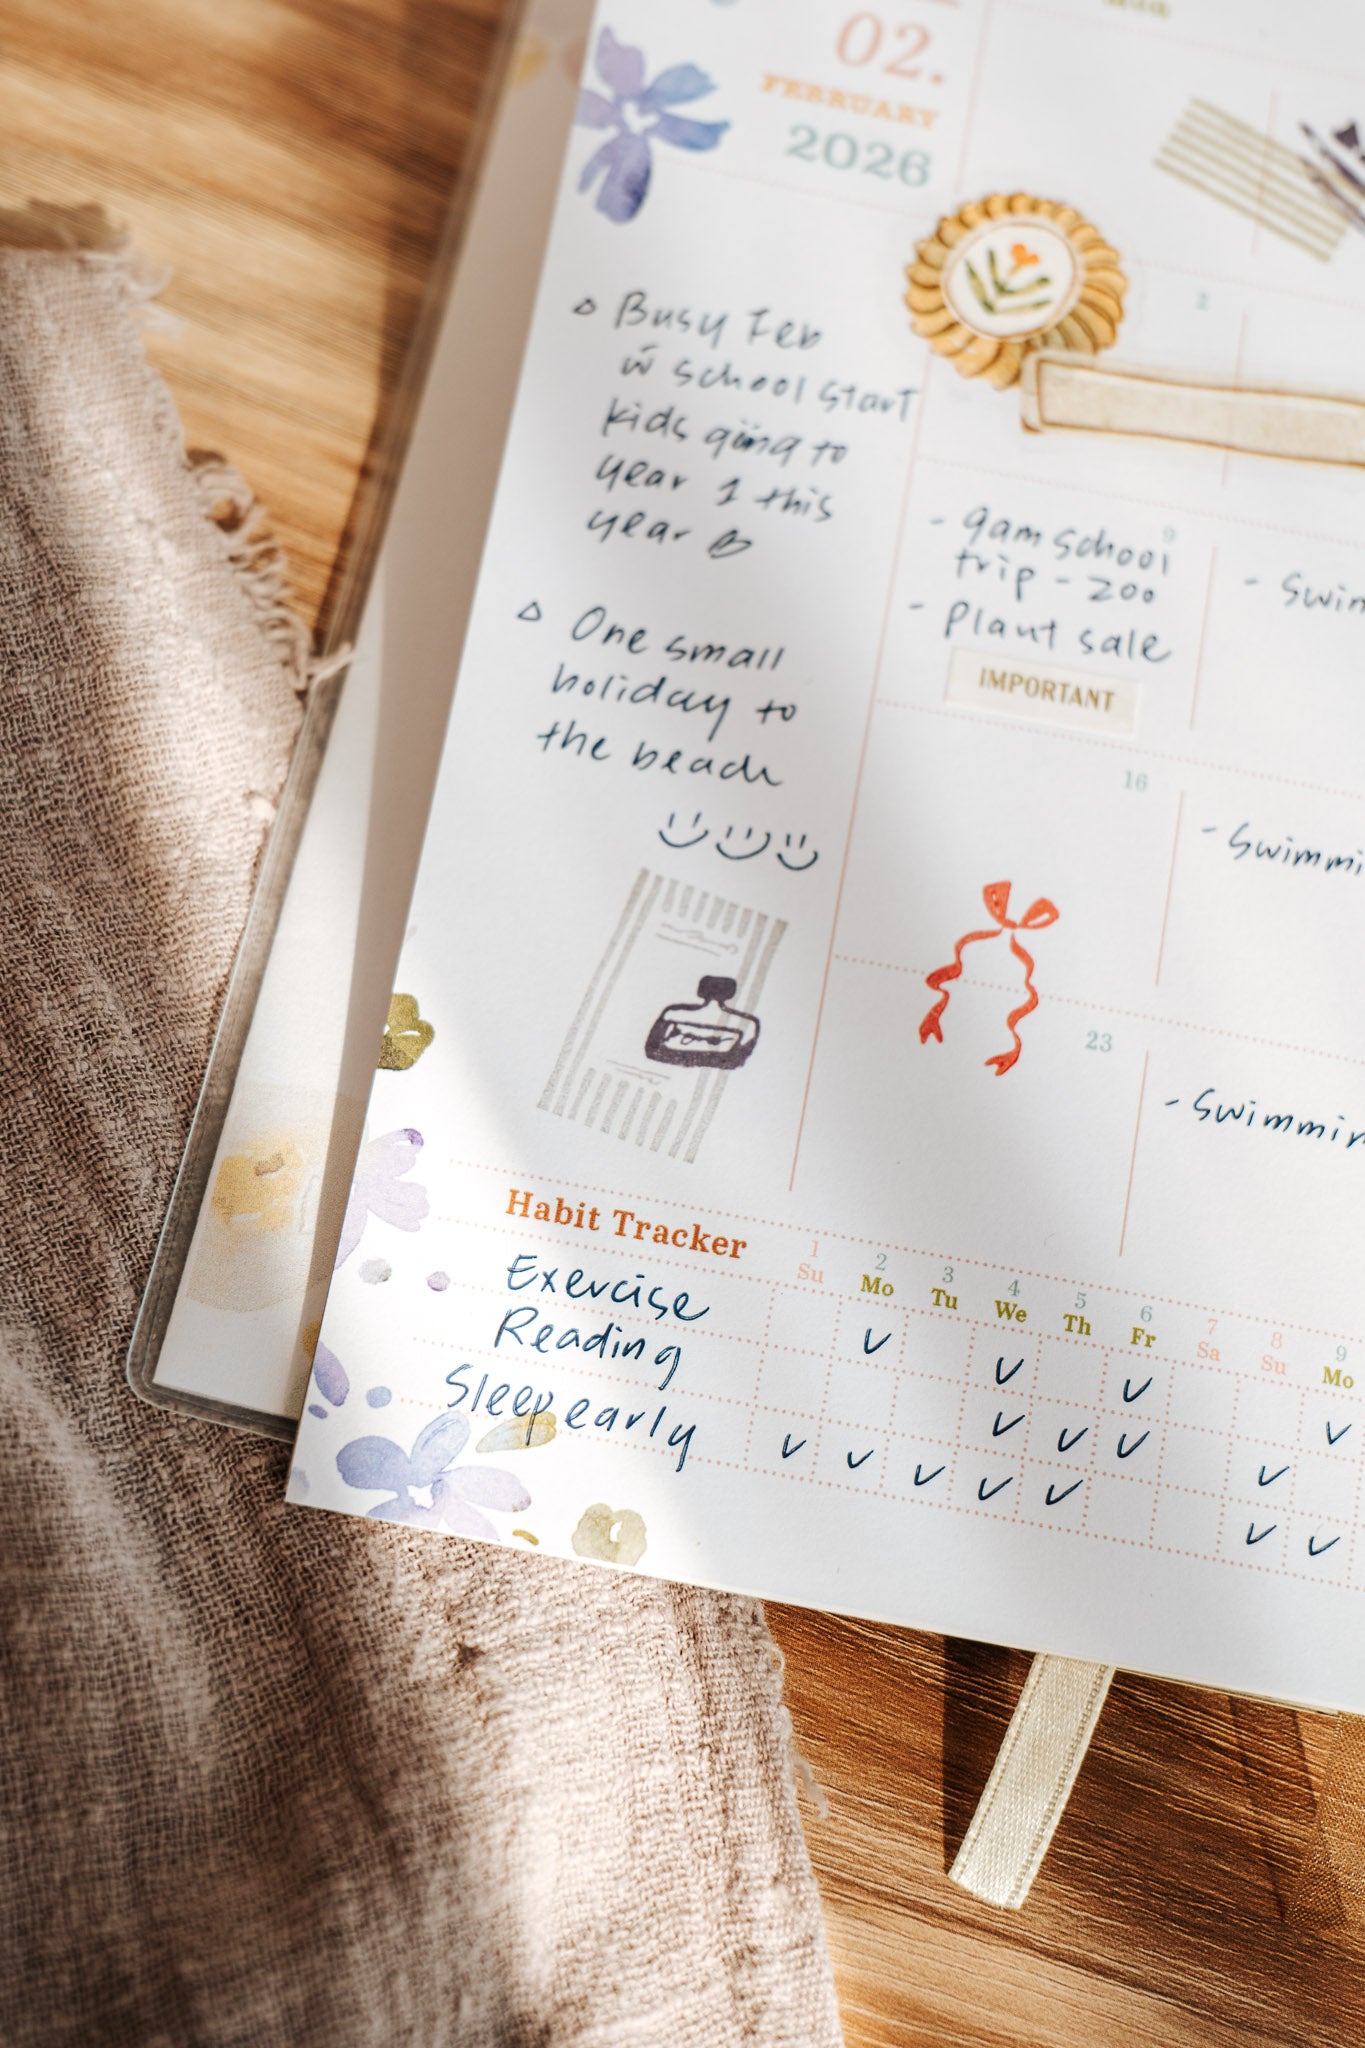 02.
FEBRUARY
2026
Busy Feb
w̄ school start
kids going to
year 1 this
year
One small
holiday to
the beach
2
9
- 9am school
trip - zoo
- Plant sale
IMPORTANT
- Swim
16
- Swimmi
23
- Swimmin
Habit Tracker
1 2 3 4 5 6 7 8 9
Su Mo Tu We Th Fr Sa Su Mo
Exercise
Reading
Sleep early